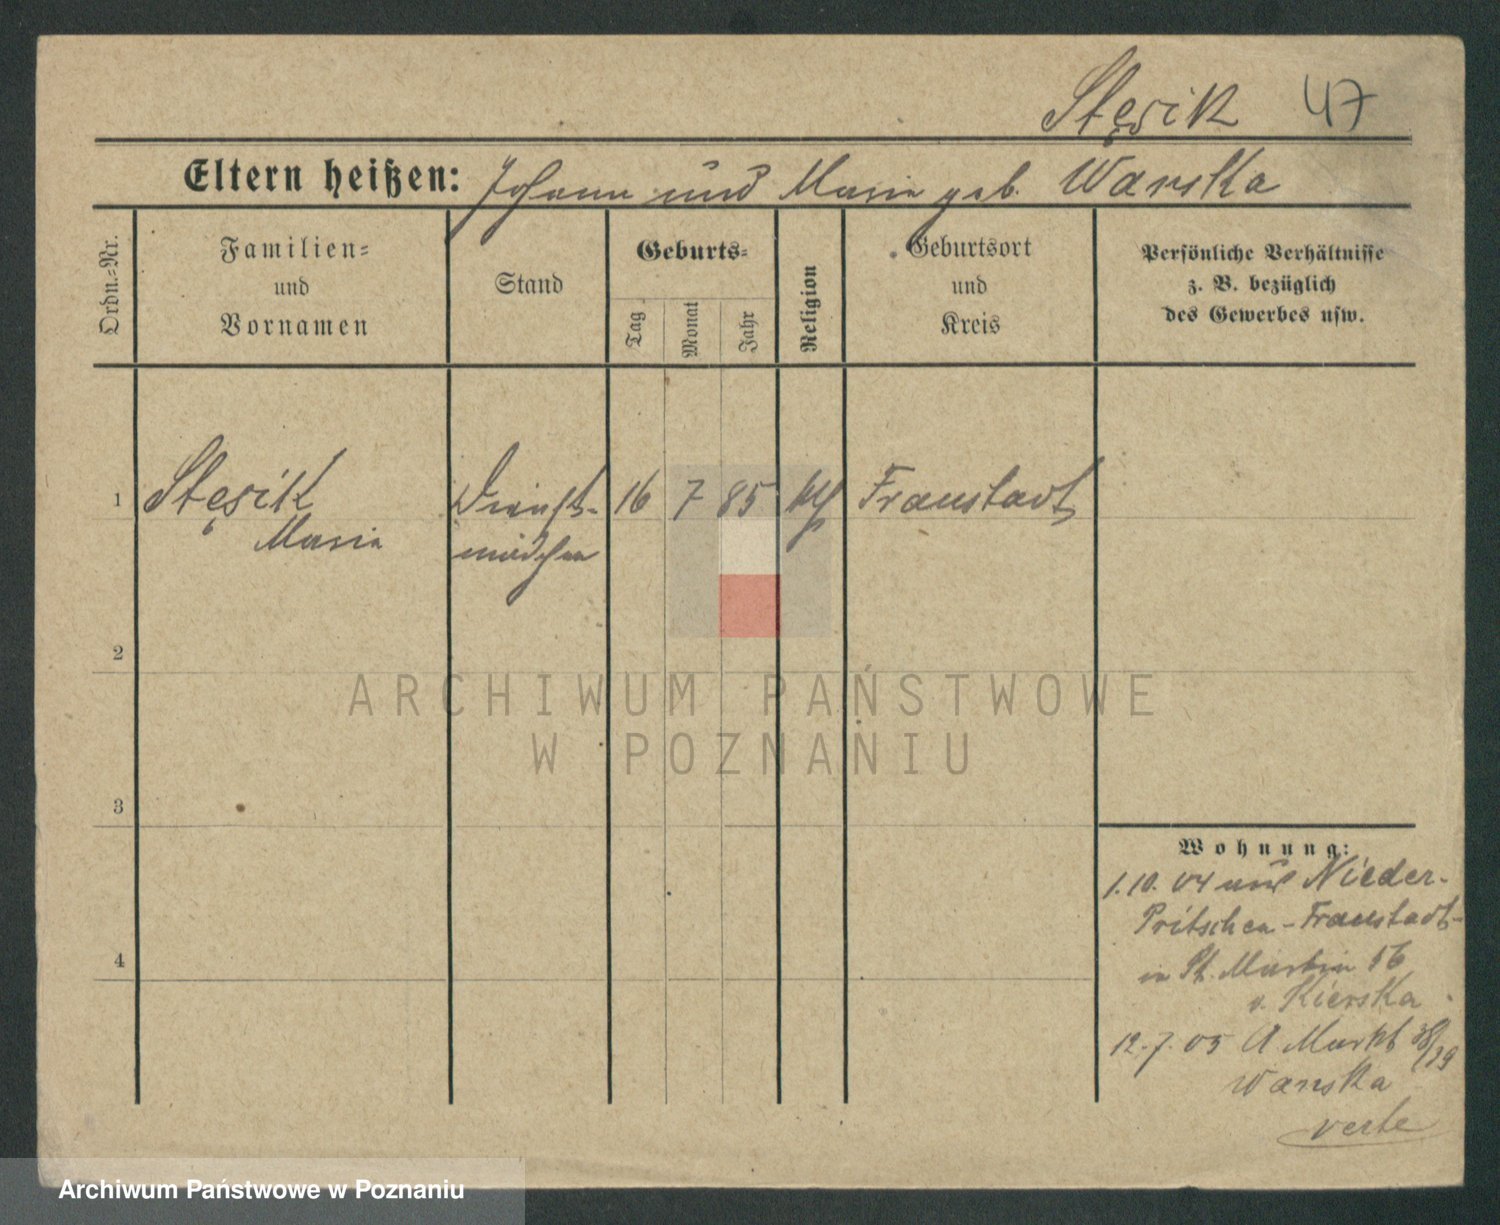 Stęsik 47
Eltern heißen: Johann und Maria geb. Warska
Ordn.=Nr.
Familien=
und
Vornamen
Stand
Geburts=
Tag
Monat
Jahr
Religion
Geburtsort
und
Kreis
Persönliche Verhältnisse
z. B. bezüglich
des Gewerbes usw.
1 Stęsik Dienst- 16 7 85 kth Fraustadt
Maria mädchen
2
3
4
Wohnung:
1.10. 04 aus Nieder-
Pritschen - Fraustadt-
in St. Martin 56
v. Kierska
12.7.05 A. Markt 38/39
Warska
verte
ARCHIWUM PAŃSTWOWE
W POZNANIU
Archiwum Państwowe w Poznaniu